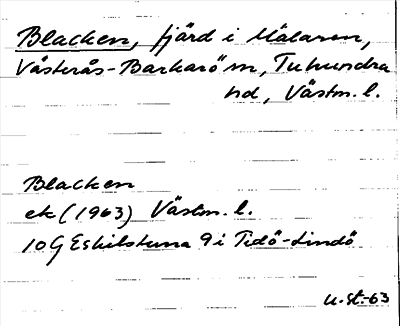 Blacken, fjärd i Mälaren,
Västerås-Barkarö sn, Tuhundra
hd, Västm. l.
Blacken
ek (1963) Västm. l.
10G Eskilstuna 9i Tidö-Lindö
u.st-63